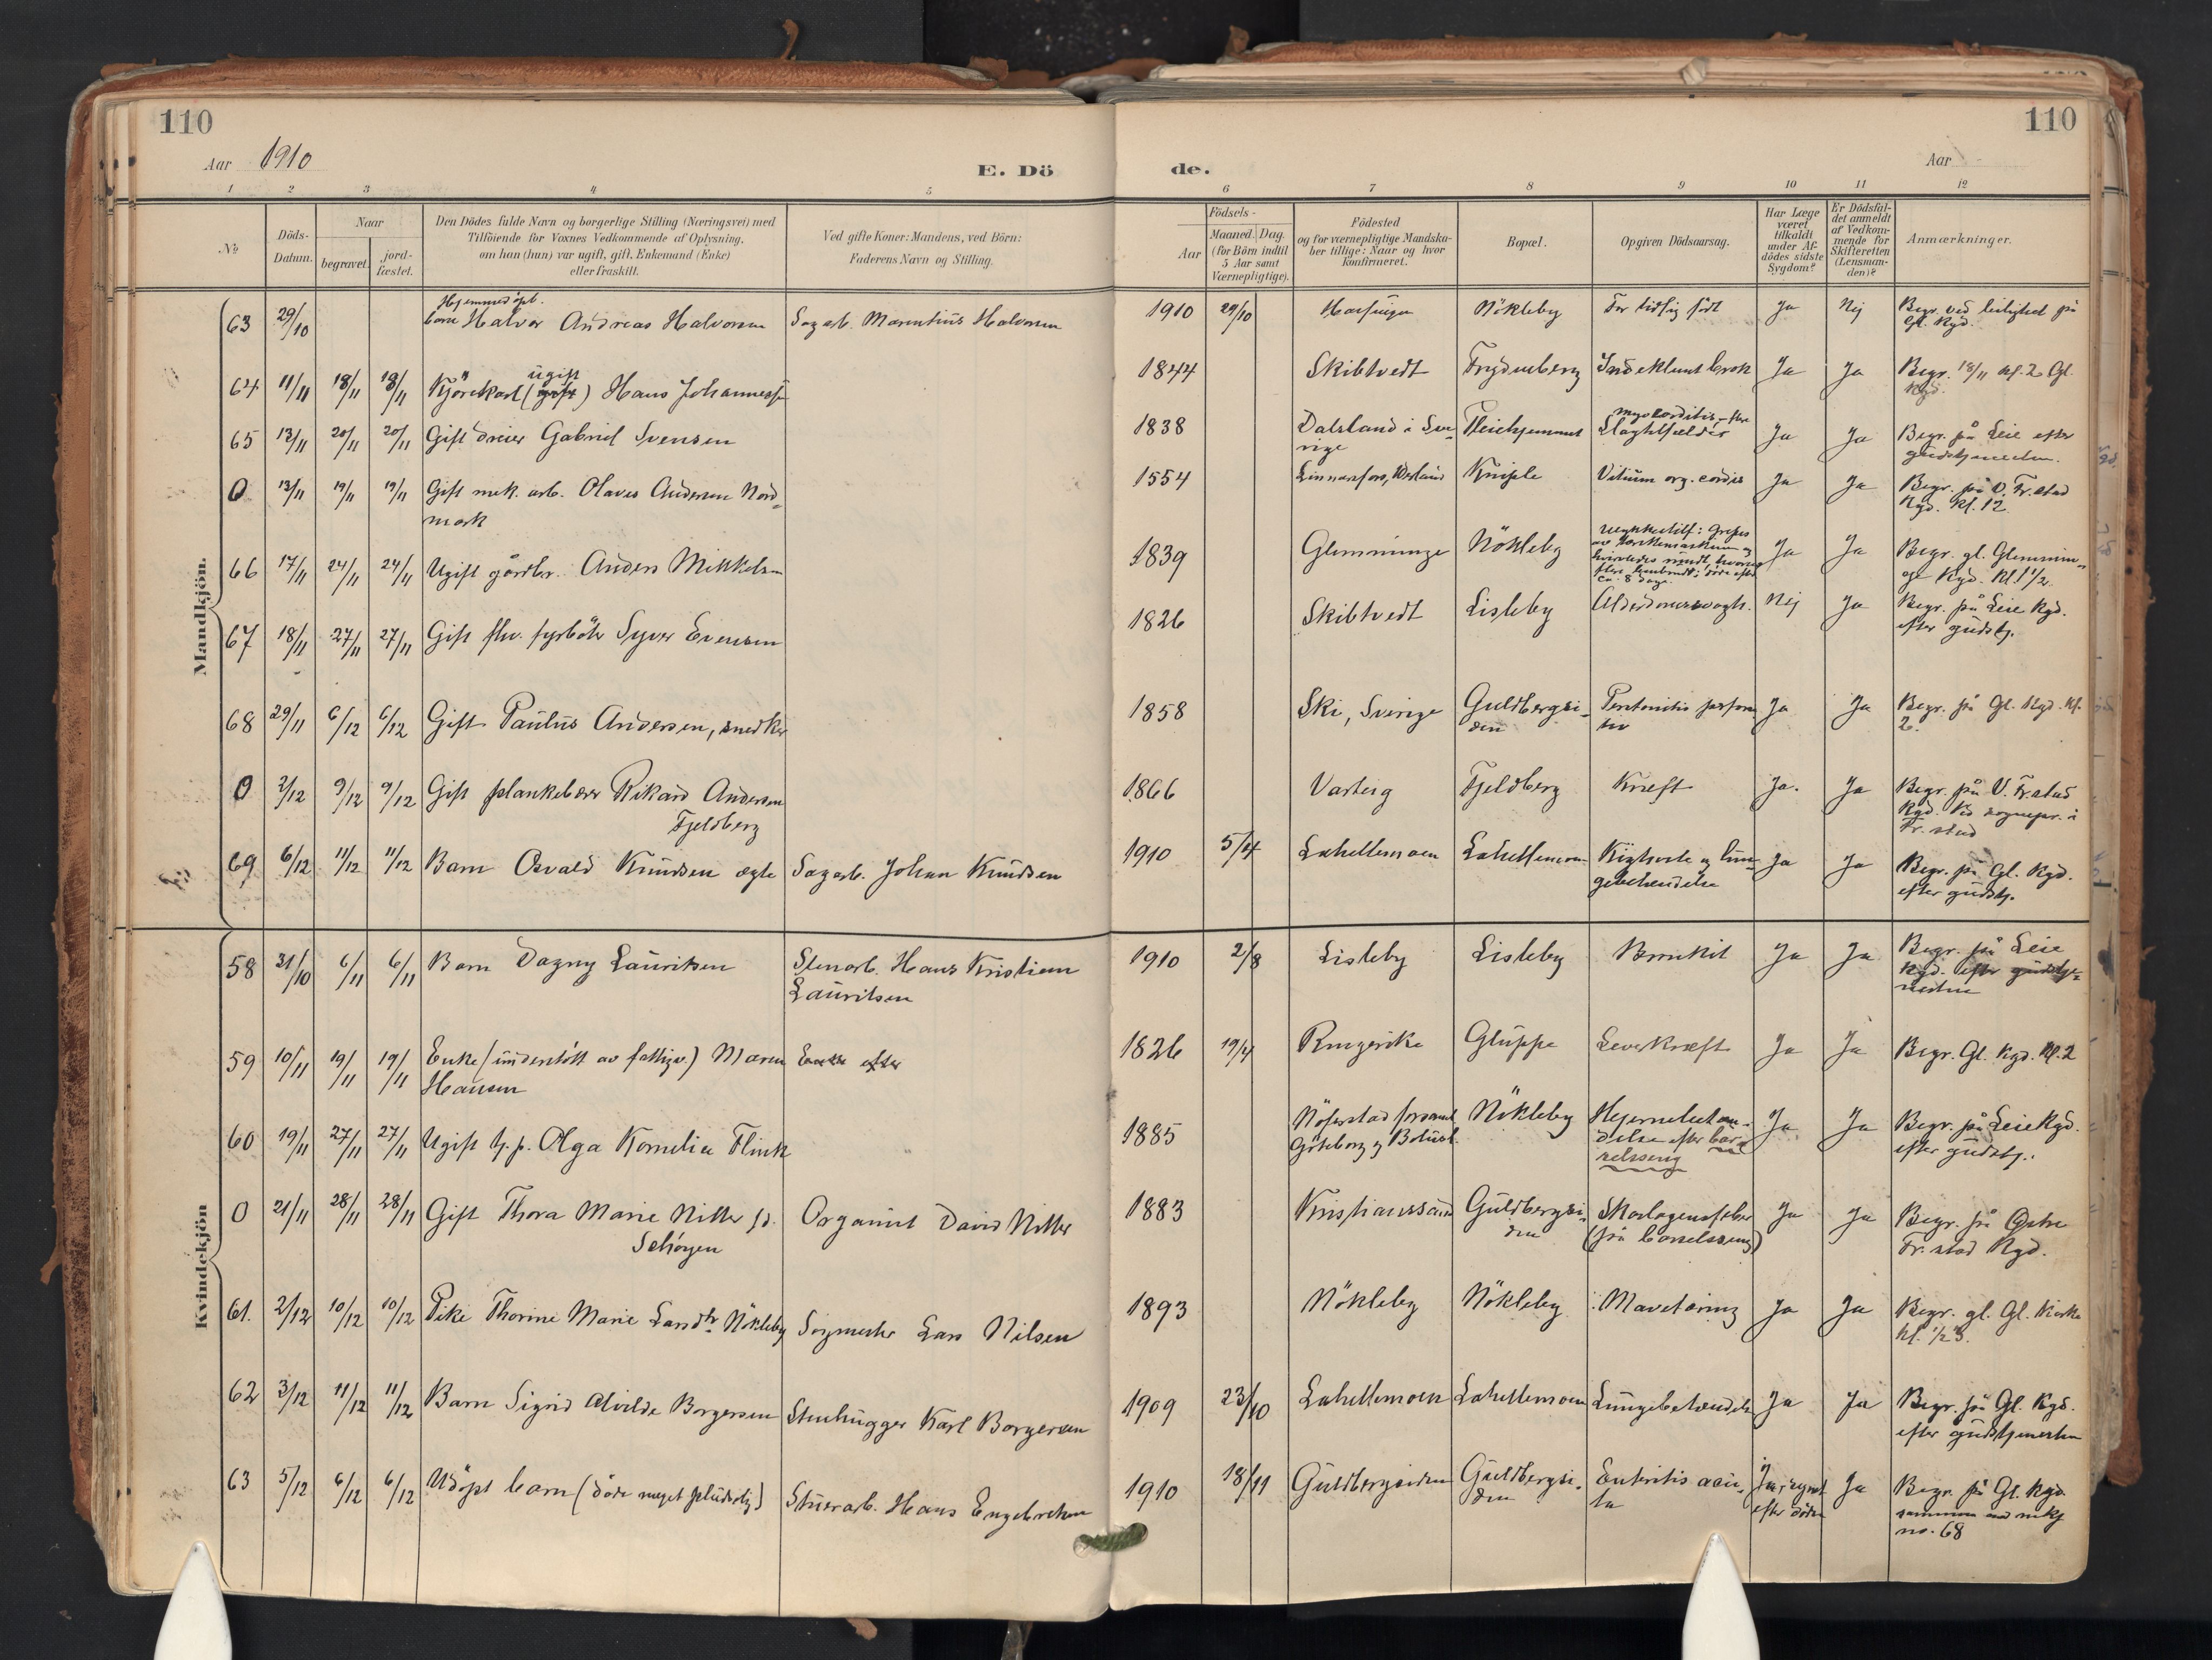 110
110
Aar 1910
E. Dö
de.
Aar
1 2 3 4 5 6 7 8 9 10 11 12
No
Döds-
Datum.
Naar
begravet.
jord-
fæstet.
Den Dödes fulde Navn og borgerlige Stilling (Næringsvei) med
Tilföiende for Voxnes Vedkommende af Oplysning,
om han (hun) var ugift, gift, Enkemand (Enke)
eller fraskilt.
Ved gifte Koner: Mandens, ved Börn:
Faderens Navn og Stilling.
Födsels-
Aar
Maaned. Dag.
(for Börn indtil
5 Aar samt
Værnepligtige).
Födested
og for værnepligtige Mandska-
ber tillige: Naar og hvor
Konfirmeret.
Bopæl.
Opgiven Dödsaarsag.
Har Læge
været
tilkaldt
under Af-
dödes sidste
Sygdom?
Er Dödsfal-
det anmeldt
af Vedkom-
mende for
Skifteretten
(Lensman-
den)?
Anmærkninger.
Mandkjön.
Hjemmedöpt
63 29/10 barn Halvor Andreas Halvorsen Sagarb. Marentius Halvorsen 1910 29/10 Nökleby For tidlig födt Ja Nej Begr. ved leilighed på
Gl. Kgd.
ugift
64 11/11 18/11 18/11 Kjörekarl (gift) Hans Johannesen 1844 Skibtvedt Frydenberg Indeklemt brok Ja Ja Begr. 18/11 kl. 2 Gl.
Kgd.
65 13/11 20/11 20/11 Gift dreier Gabriel Svensen 1838 Dalsland i Sve-
rige Pleiehjemmet Ja Ja Begr. på Leie efter
gudstjenesten.
0 13/11 19/11 19/11 Gift mek. arb. Olaves Andersen Nord-
mark 1554 Kniple Vitium org. cordis Ja Ja Begr. på V. Fr.stad
Kgd. kl. 12
66 17/11 24/11 24/11 Ugift gårdbr. Anders Mikkelsen 1839 Glemminge Nökleby Ulykkestilf: Grepes
flere benbrudd; döde efter
ca. 8 dage. Ja Ja Begr. gl. Glemmin-
ge Kgd. Kl 1 1/2.
67 18/11 27/11 27/11 Gift fhv. fyrböter Syver Evensen 1826 Skibtvedt Lisleby Alderdomssvagh. Nej Ja Begr. på Leie Kgd.
efter gudstj.
68 29/11 6/12 6/12 Gift Paulus Andersen, snedker 1858 Ski, Sverige Guldbergsi-
den Peritonitis perfora
tiv Ja Ja Begr. på Gl. Kgd. Kl.
2.
0 2/12 9/12 9/12 Gift plankebærer Rikard Andersen
Fjeldberg 1866 Varteig Fjeldberg Kræft Ja. Ja Begr. på V. Fr.stad
Kgd. Ved sognepr. i
Fr. stad
69 6/12 11/12 11/12 Barn Osvald Knudsen ægte Sagarb. Johan Knudsen 1910 5/4 Lahellemoen Lahellemoen Kighoste og lun-
gebetændelse Ja Ja Begr. på Gl. Kgd.
efter gudstj.
Kvindekjön
58 31/10 6/11 6/11 Barn Dagny Lauritsen Stenarb. Hans Kristian
Lauritsen 1910 2/8 Lisleby Lisleby Bronkit Ja Ja Begr. på Leie
Kgd. efter gudstje-
nesten
59 10/11 19/11 19/11 Enke (understött av fattigv.) Maren
Hansen Enke efter 1826 19/4 Ringerike Gluppe Leverkræft Ja Ja Begr. Gl. Kgd. Kl. 2
60 19/11 27/11 27/11 Ugift tj. p. Olga Kornelia Flink 1885
Göteborg og Bohusl. Nökleby Hjernebetæn-
delse efter bar-
selsseng Ja Ja Begr. på Leie Kgd.
efter gudstj.
0 21/11 28/11 28/11 Gift Thora Marie Nitter f.
Schöyen Organist David Nitter 1883 Kristianssand Guldbergsi-
den Skarlagensfeber
(på barselsseng) Ja Ja Begr. på Östre
Fr. stad Kgd.
61. 2/12 10/12 10/12 Pike Thorine Marie Larsdtr Nökleby Sagmester Lars Nilsen 1893 Nökleby Nökleby Mavetæring Ja Ja Begr. gl. Gl. Kirke
kl. 1/2 3.
62 3/12 11/12 11/12 Barn Sigrid Alvilde Borgersen Stenhugger Karl Borgersen 1909 23/10 Lahellemoen Lahellemoen Lungebetændelse Ja Ja Begr. på Gl. Kgd.
efter gudstjenesten
63 5/12 6/12 6/12 Udöpt barn (döde meget pludselig) Stuerarb. Hans Engebretsen 1910 18/11 Guldbergsiden Guldbergsi-
den Enteritis acu-
ta Ja, synet
efter döden Ja Begr. på Gl. Kgd.
sammen med mkj
no. 68